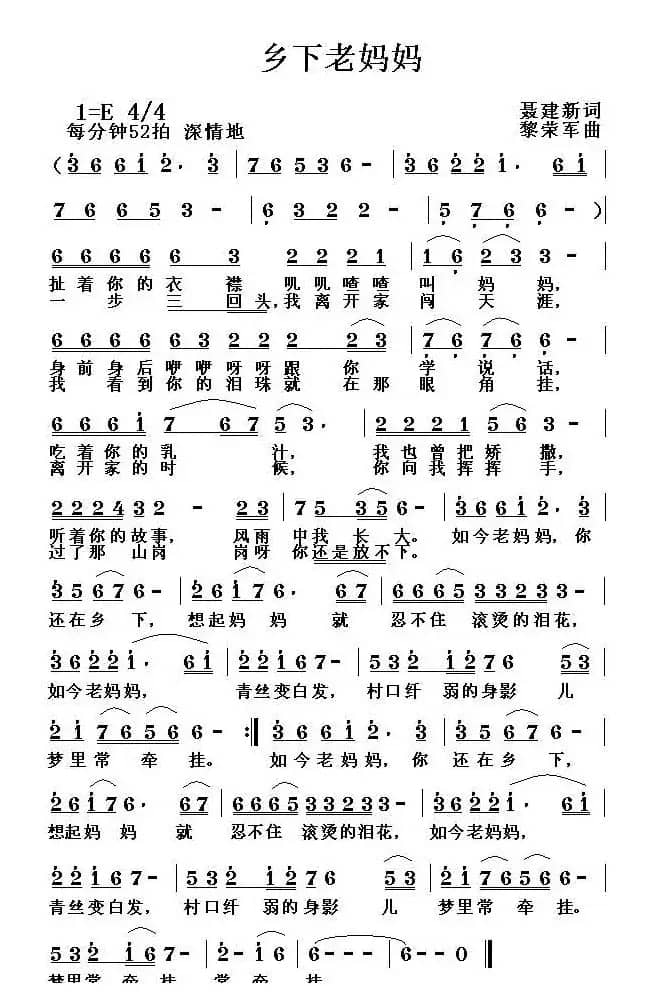 乡下老妈妈
1=E 4/4
聂建新词
每分钟52拍 深情地
黎荣军曲
(3 6 6 1 2· 3 | 7 6 5 3 6 - | 3 6 2 2 1· 6 1 |
7 6 6 5 3 - | 6 3 2 2 - | 5 7 6 6 - )
6 6 6 6 6 3 2 2 2 1 | 1 6 2 3 3 - |
扯着你的衣襟 叽叽喳喳叫妈妈,
一步三回头,我离开家闯天涯,
6 6 6 6 6 3 2 2 2 2 3 | 7 6 7 6 6 - |
身前身后咿咿呀呀跟你学说话,
我看到你的泪珠就在那眼角挂,
6 6 6 1 7 6 7 5 3· | 2 2 2 1 5 6 3 - |
吃着你的乳汁, 我也曾把娇撒,
离开家的时候, 你向我挥挥手,
2 2 2 4 3 2 - 2 3 | 7 5 3 5 6 - | 3 6 6 1 2· 3 |
听着你的故事, 风雨中我长大。如今老妈妈,你
过了那山岗 岗呀你还是放不下。
3 5 6 7 6 - | 2 6 1 7 6· 6 7 | 6 6 6 5 3 3 2 3 3 - |
还在乡下, 想起妈妈就 忍不住滚烫的泪花,
3 6 2 2 1· 6 1 | 2 2 1 6 7 - | 5 3 2 1 2 7 6 5 3 |
如今老妈妈, 青丝变白发, 村口纤弱的身影儿
2 1 7 6 5 6 6 - :‖ 3 6 6 1 2· 3 | 3 5 6 7 6 - |
梦里常牵挂。 如今老妈妈,你 还在乡下,
2 6 1 7 6· 6 7 | 6 6 6 5 3 3 2 3 3 - | 3 6 2 2 1· 6 1 |
想起妈妈就 忍不住滚烫的泪花, 如今老妈妈,
2 2 1 6 7 - | 5 3 2 1 2 7 6 5 3 | 2 1 7 6 5 6 6 - |
青丝变白发, 村口纤弱的身影儿 梦里常牵挂。
5 3 2 1 6 - | 2 1 2 - | 6 - - 0 ‖
梦里常牵挂 常牵挂